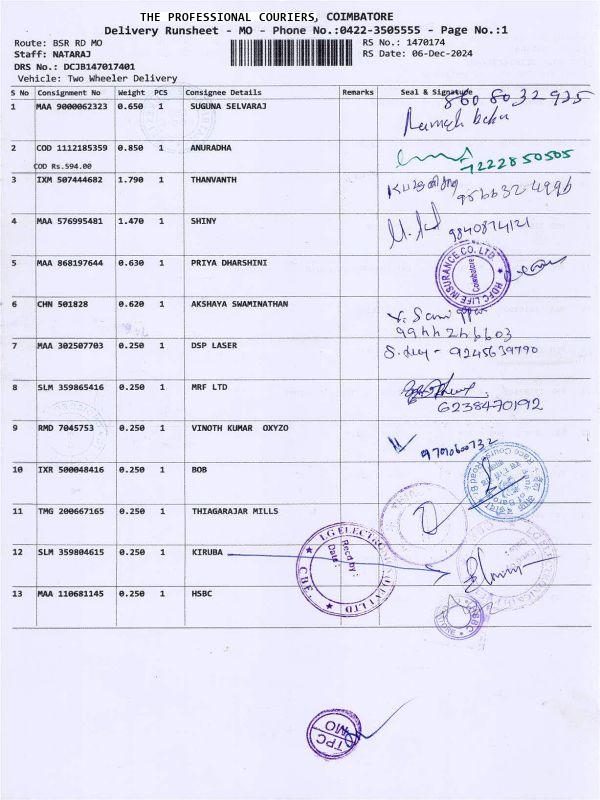 THE PROFESSIONAL COURIERS, COIMBATORE
Delivery Runsheet - MO - Phone No.:0422-3505555 - Page No.:1
Route: BSR RD MO
RS No.: 1470174
Staff: NATARAJ
RS Date: 06-Dec-2024
DRS No.: DCJB147017401
Vehicle: Two Wheeler Delivery
S No Consignment No Weight PCS Consignee Details Remarks Seal & Signature
1 MAA 9000062323 0.650 1 SUGUNA SELVARAJ
2 COD 1112185359 0.850 1 ANURADHA 7222850505
COD Rs.594.00
3 IXM 507444682 1.790 1 THANVANTH
4 MAA 576995481 1.470 1 SHINY 9840874121
5 MAA 868197644 0.630 1 PRIYA DHARSHINI
HDFC LIFE INSURANCE CO. LTD
Coimbatore
6 CHN 501828 0.620 1 AKSHAYA SWAMINATHAN
9944266603
7 MAA 302507703 0.250 1 DSP LASER 9245639790
8 SLM 359865416 0.250 1 MRF LTD
6238470192
9 RMD 7045753 0.250 1 VINOTH KUMAR OXYZO
9790600732
10 IXR 500048416 0.250 1 BOB
11 TMG 200667165 0.250 1 THIAGARAJAR MILLS
12 SLM 359804615 0.250 1 KIRUBA
LG ELECTRONICS
Recd by:
Date:
CBE.
13 MAA 110681145 0.250 1 HSBC
TPC
MO